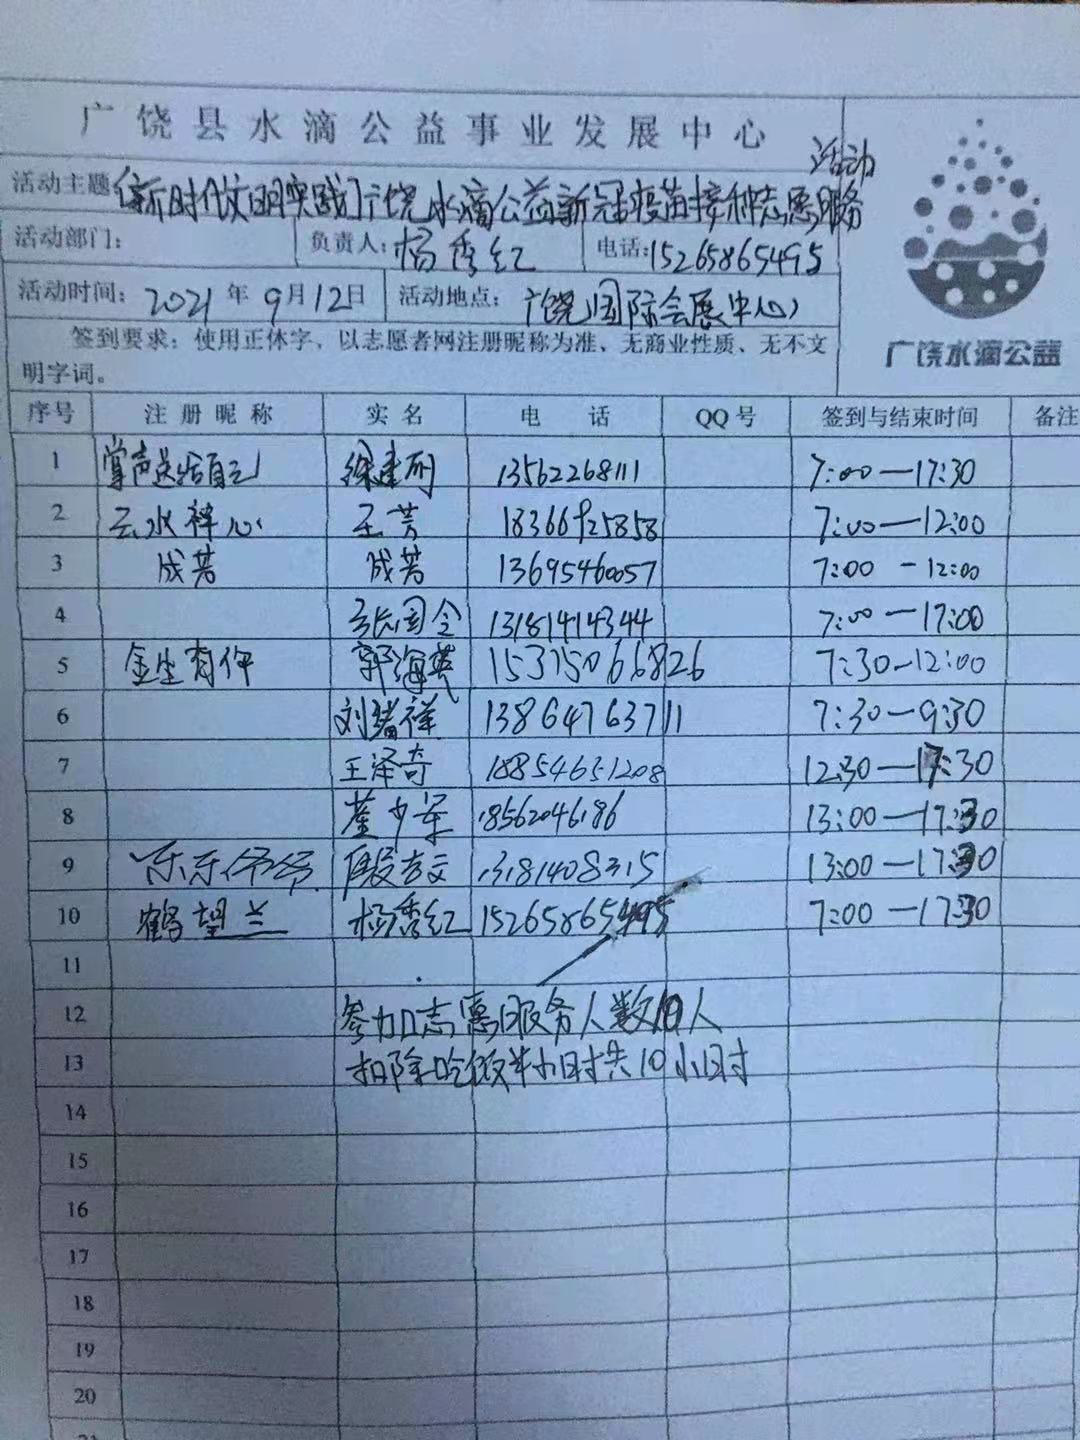 广饶县水滴公益事业发展中心
活动主题 《新时代文明实践》广饶水滴公益新冠疫苗接种志愿服务活动
活动部门： 负责人：杨秀红 电话：15265865495
活动时间：2021年9月12日 活动地点：广饶国际会展中心
签到要求：使用正体字，以志愿者网注册昵称为准、无商业性质、无不文
明字词。
广饶水滴公益
序号 注册昵称 实名 电话 QQ号 签到与结束时间 备注
1 掌声送给自己 徐建 13562268111 7:00—17:30
2 云水禅心 王芳 18366925858 7:00—12:00
3 成芳 成芳 13695460057 7:00-12:00
4 张国令 13181414344 7:00—17:00
5 金生有伊 郭海英 15375066826 7:30-12:00
6 刘绪祥 13864763711 7:30—9:30
7 王泽奇 18854651208 12:30—17:30
8 董少军 18562046186 13:00—17:30
9 乐乐爷爷 殷方文 13181408315 13:00—17:30
10 鹤望兰 杨秀红 15265865495 7:00—17:30
11
12 参加志愿服务人数10人
13 扣除吃饭半小时共10小时
14
15
16
17
18
19
20
21